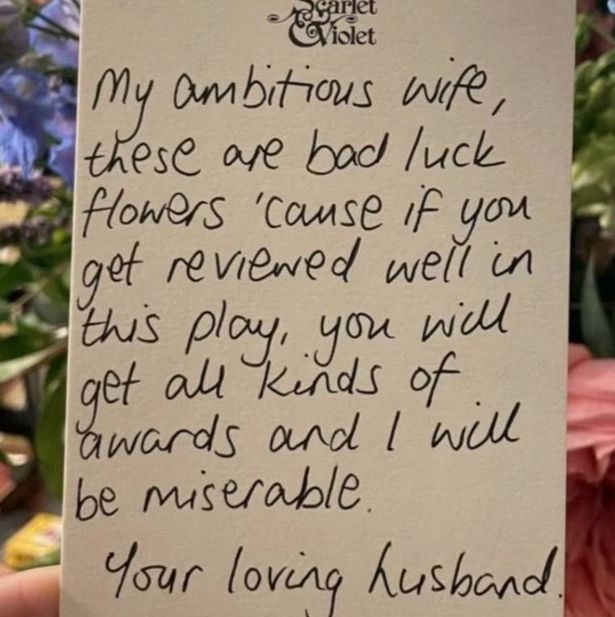 Scarlet
& Violet
My ambitious wife,
these are bad luck
flowers 'cause if you
get reviewed well in
this play, you will
get all kinds of
awards and I will
be miserable.
Your loving husband.